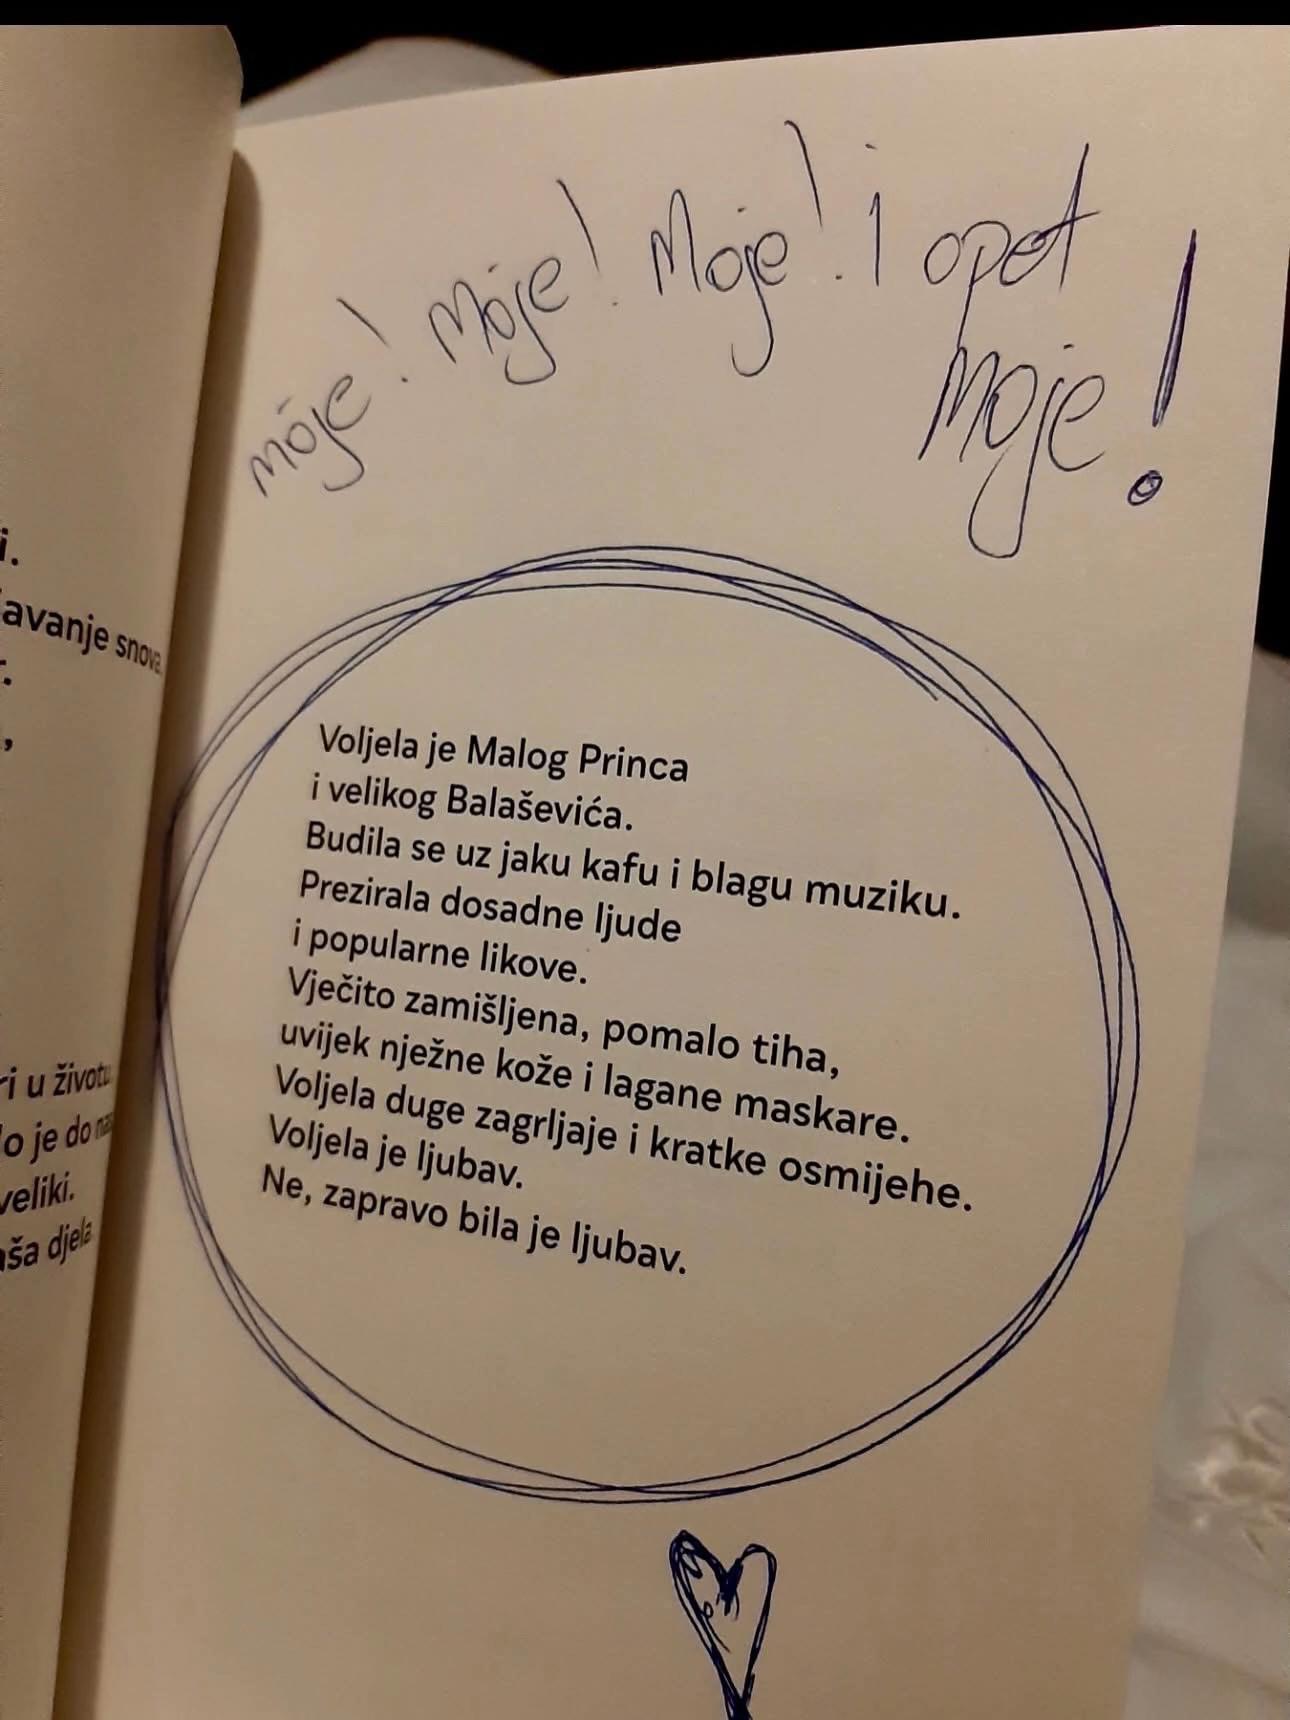 moje! Moje! Moje! I opet
Moje!
i.
avanje snova
r.
,
ri u životu
lo je do nas
veliki.
aša djela
Voljela je Malog Princa
i velikog Balaševića.
Budila se uz jaku kafu i blagu muziku.
Prezirala dosadne ljude
i popularne likove.
Vječito zamišljena, pomalo tiha,
uvijek nježne kože i lagane maskare.
Voljela duge zagrljaje i kratke osmijehe.
Voljela je ljubav.
Ne, zapravo bila je ljubav.